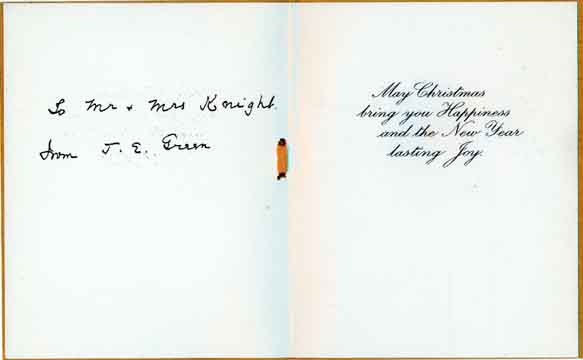 To Mr & Mrs Knight.
from J. E. Green
May Christmas
bring you Happiness
and the New Year
lasting Joy.